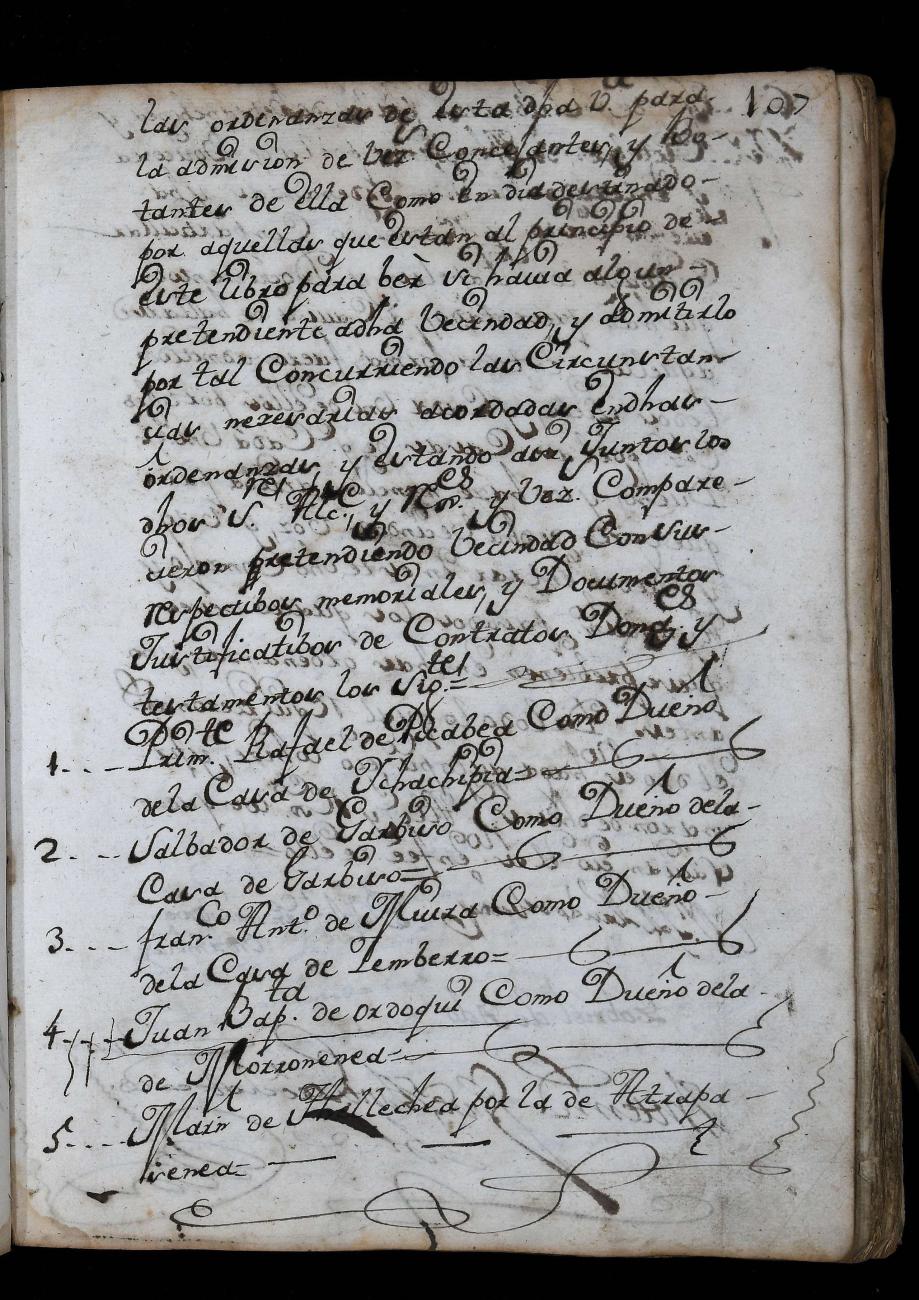 107
las ordenanzas de esta dha V.ª para
la admision de vez.s Concejantes, y Vo-
tantes de ella Como en dia destinado-
por aquellas que estan al principio de
este libro para ber si havia algun-
pretendiente a dha Vecindad, y admitirlo
por tal Concurriendo las Circunstan-
cias nezesarias acordadas en dhas-
ordenanzas, y estando asi Juntos los
dhos S.res Alc.e, y R.es y Vez.s Compare-
cieron pretendiendo Vecindad Con sus-
respectibos memoriales, y Documentos
Justificatibos de Contratos Donq.es y
testamentos los sig.tes=
1. . . - Prim.te Rafael de Recabea Como Dueño
dela Casa de Ychachipia=
2. . . - Salbador de Garbiso Como Dueño dela-
Casa de Garbiso=
3. . . - fran.co Ant.o de Miura Como Dueño-
dela Casa de Lemberro=
4. Juan Bap.ta de ordoqui Como Dueño dela-
de Morronenea=
5. . . - Mar.n de Hillechea por la de Atzapa-
renea=